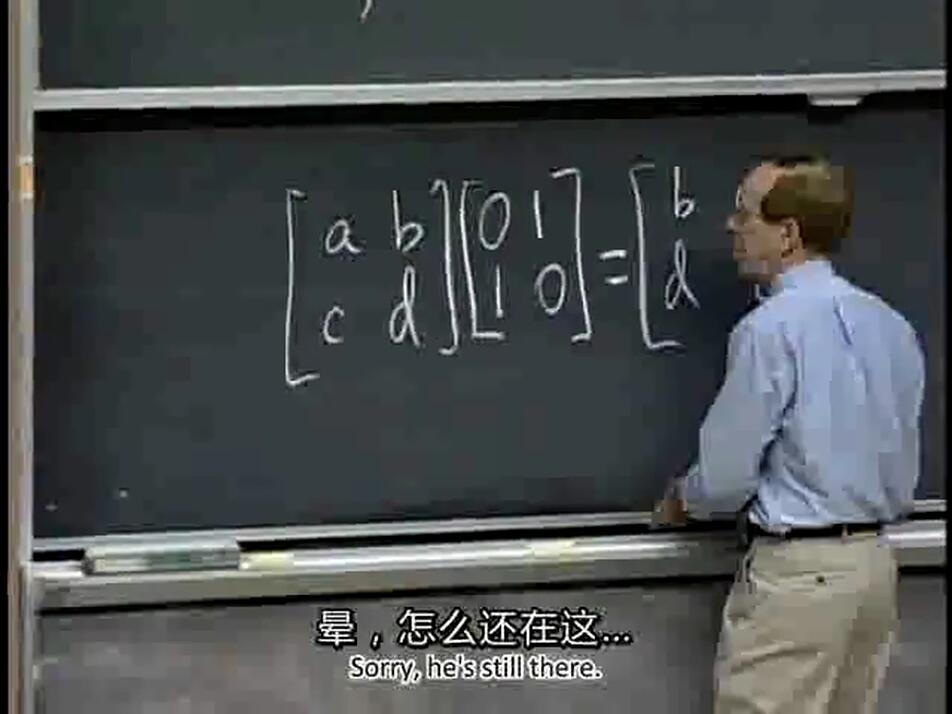 [a b] [0 1] = [b
[c d] [1 0] [d
晕，怎么还在这...
Sorry, he's still there.